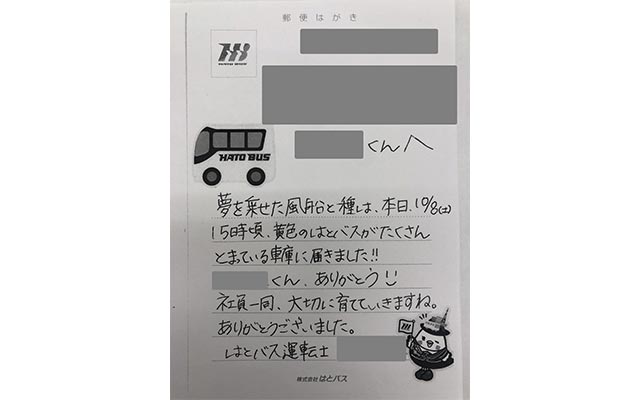 郵便はがき
HATO BUS
くんへ
夢を乗せた風船と種は、本日、10/8(土)
15時頃、黄色のはとバスがたくさん
とまっている車庫に届きました!!
くん、ありがとう
社員一同、大切に育てていきますね。
ありがとうございました。
はとバス運転士
株式会社はとバス